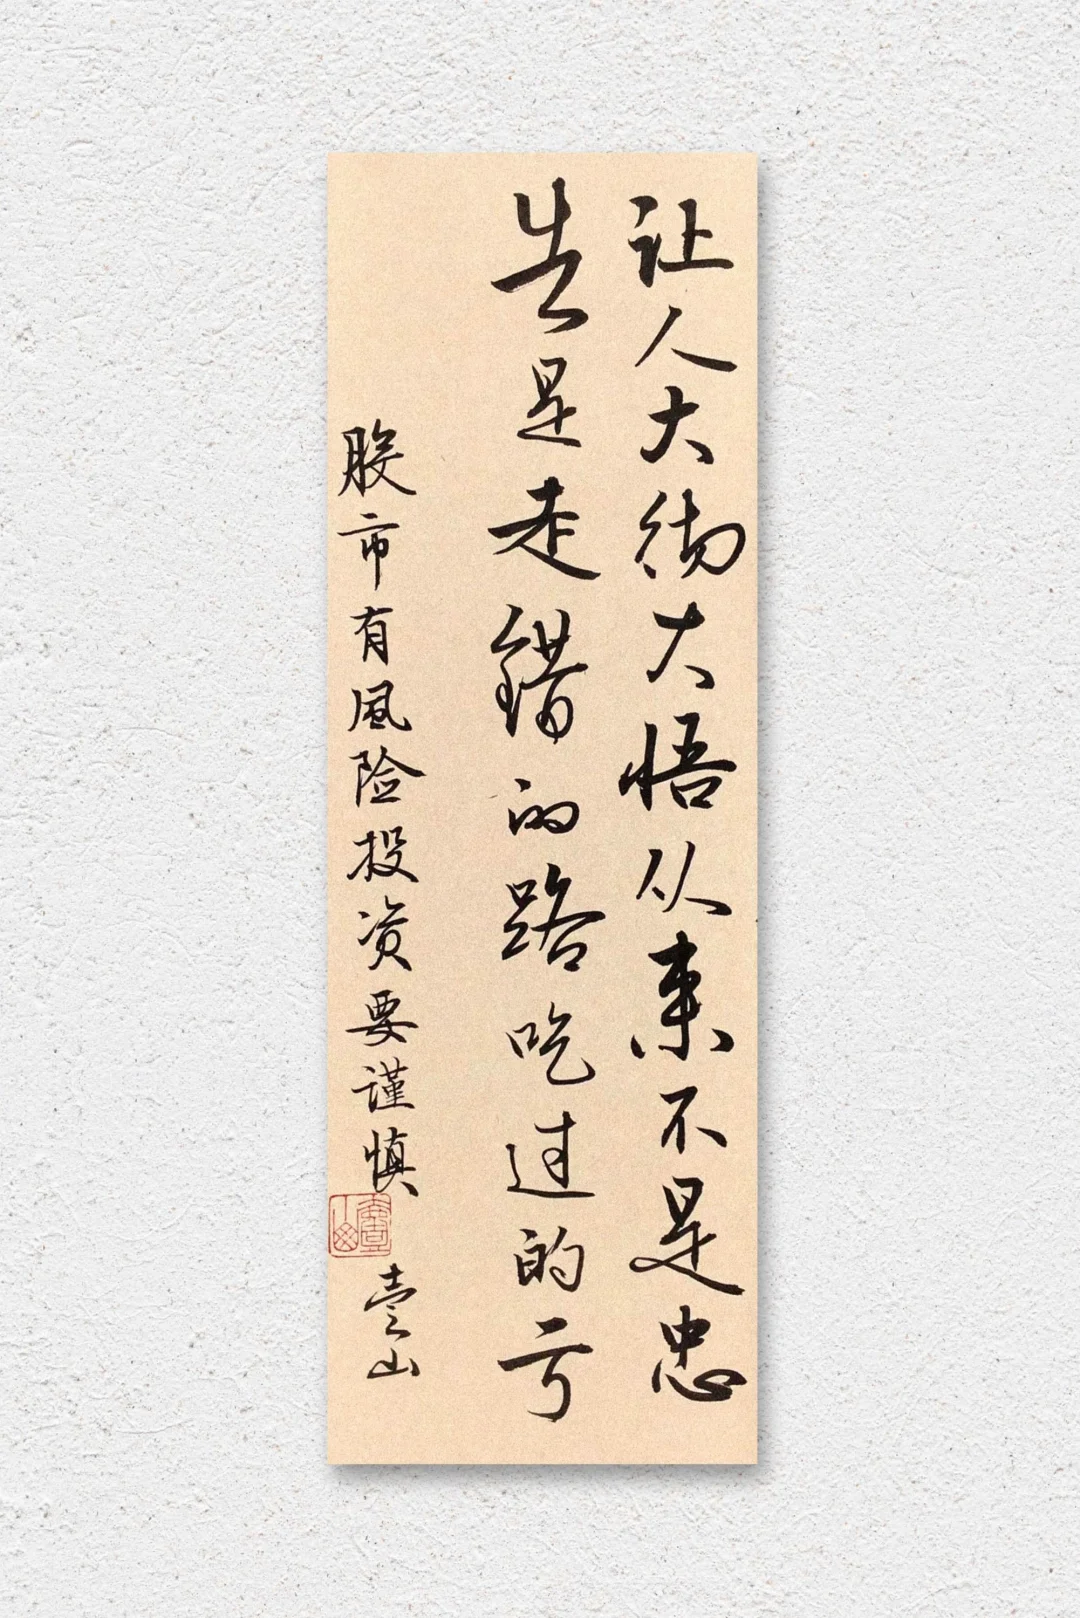 让人大彻大悟从来不是忠
告是走错的路吃过的亏
股市有风险投资要谨慎
壹山